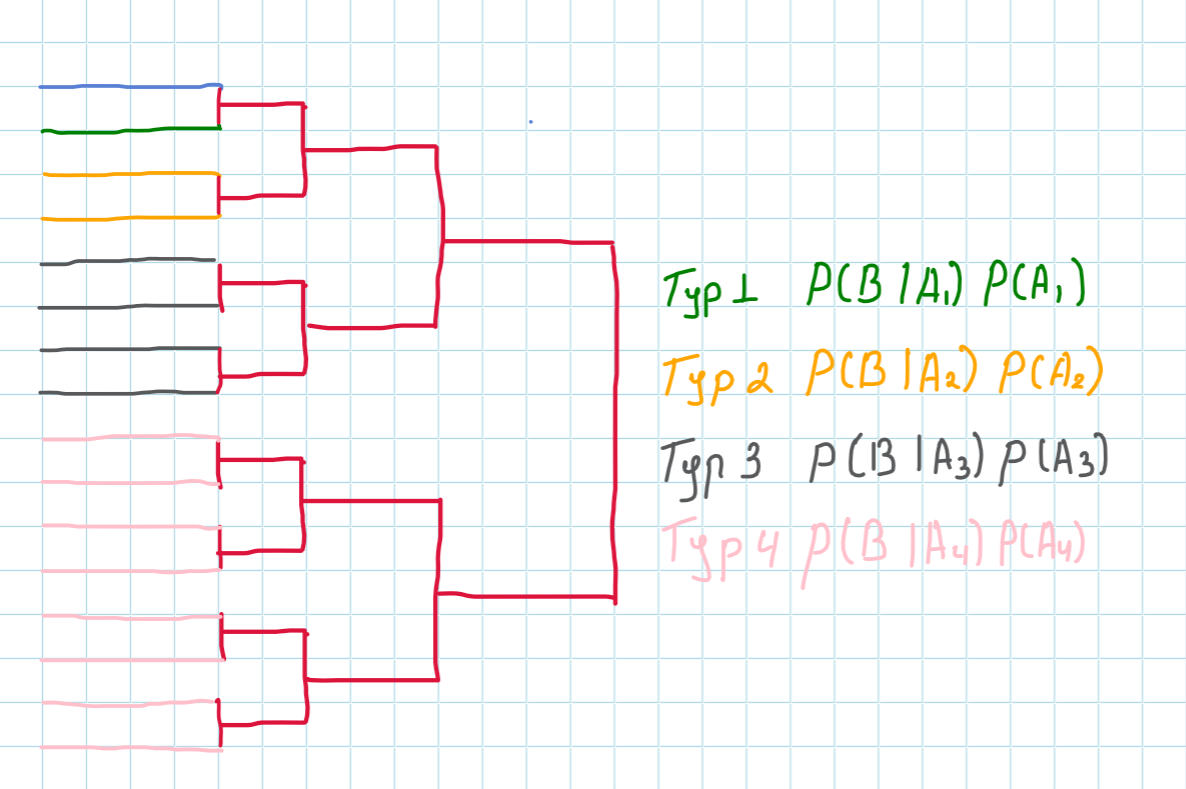 Typ 1 P(B|A₁) P(A₁)
Typ 2 P(B|A₂) P(A₂)
Typ 3 P(B|A₃) P(A₃)
Typ 4 P(B|A₄) P(A₄)